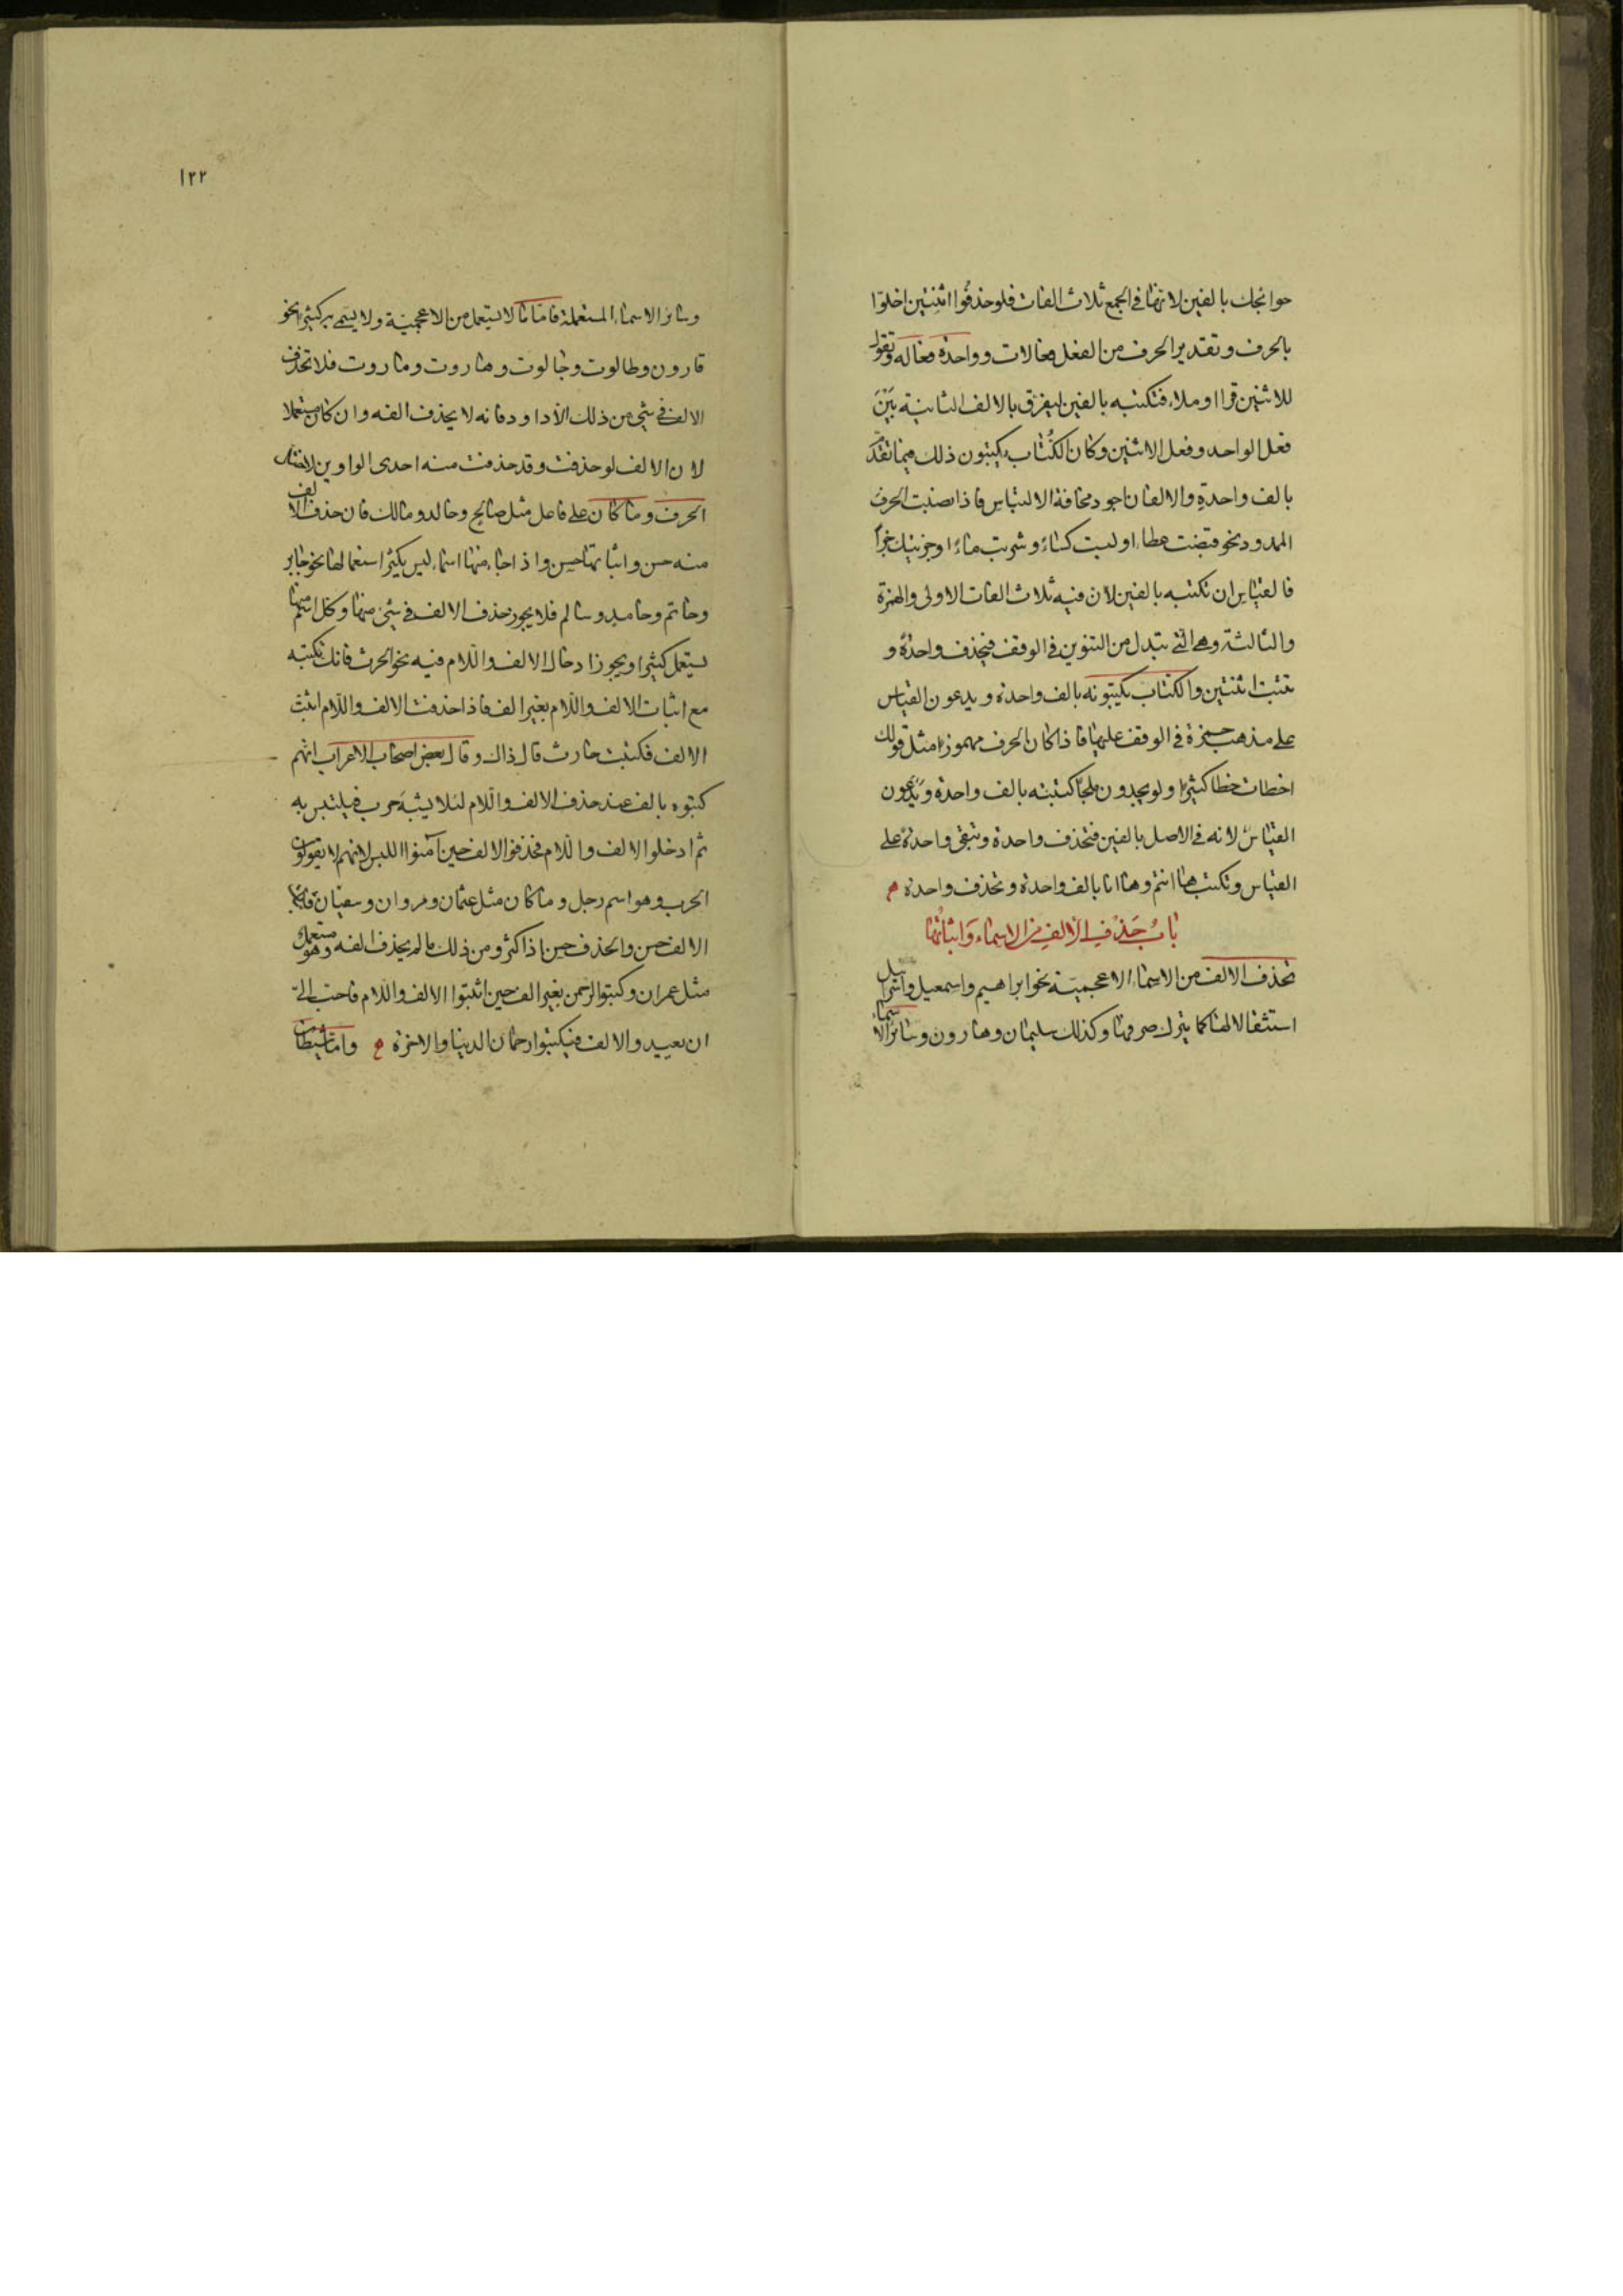 حوائجك بالفين لانها في الجمع ثلاث الفات فلو حذفوا اثنتين اخلوا
بالحرف وتقدير الحرف من الفعل فعالات وواحدة فعاله وتقول
للاثنين قراا وملاا فتكتبه بالفين ليفرق بالالف الثانية بَيْنَ
فعل الواحد وفعل الاثنين وكان الكُتّاب يكتبون ذلك فيما تقدّم
بالف واحدةٍ والالفان اجود مخافة الالتباس فاذا نصبت الحرف
الممدود نحو قبضت عطاء او لبست كساءً وشربت ماءً او جزيتك جزاءً
فالقياس ان تكتبه بالفين لان فيه ثلاث الفات الاولى والهمزة
والثالثة وهي التي تبدل من التنوين في الوقف فتحذف واحدةً و
تثبت اثنتين والكتاب يكتبونه بالف واحدة ويدعون القياس
على مذهب حمزة في الوقف عليها فاذا كان الحرف مهموزا مثل قولك
اخطات خطا كثيرا ولو يجدون ملجا كتبته بالف واحدة ويَدَعون
القياسُ لانه في الاصل بالفين فتحذف واحدة وتبقى واحدةً على
القياس وتكتب هاانتم وهاانا بالف واحدة وتحذف واحدة م
بابُ حَذْفِ الألِفِ من الاسماء وَاثباتُها
تحذف الالف من الاسماء الاعجميّة نحو ابراهيم واسمعيل واسرائيل
استثقالا لها كما يترك صرفها وكذلك سليمان وهارون وسائر الاسماء
١٢٢
وسائر الاسماء المستعملة فاما ما لا يستعمل من الاعجميّة ولا يسمى به كثيرا نحو
قارون وطالوت وجالوت وهاروت وماروت فلا تحذف
الالف في شي من ذلك الا داود فانه لا يحذف الفه وان كان مستعملا
لان الالف لو حذفت وقد حذفت منه احدى الواوين لاختل
الحرف وما كان على فاعل مثل صالح وخالد ومالك فان حذف الالف
منه حسن واثباتها حسن واذا جاء منها اسماء ليس يكثر استعمالها نحو جابر
وحاتم وحامد وسالم فلا يجوز حذف الالف في شئ منها وكل اسم منها
يستعمل كثيرا ويجوز ادخال الالف واللام فيه نحو الحرث فانك تكتبه
مع اثبات الالف واللام بغير الف فاذا حذفت الالف واللام اثبت
الالف فكتبت حارث قال ذاك وقال بعض اصحاب الاعراب انهم
كتبوه بالف عند حذف الالف واللام لئلا يشبَه حرب فيلتبس به
ثم ادخلوا الالف واللام فحذفوا الالف حين آمنوا اللبس لانهم لا يقولون
الحرب وهو اسم رجل وما كان مثل عثمان ومروان وسفيان فاثبات
الالف حسن والحذف حسن اذا كثر ومن ذلك ما لم يحذف الفه وهو مستعمل
مثل عمران وكتبوا الرحمن بغير الف حين اثبتوا الالف واللام فاحب اليّ
ان يعيدوا الالف فيكتبوا رحمان الدنيا والاخرة م واما شيطان